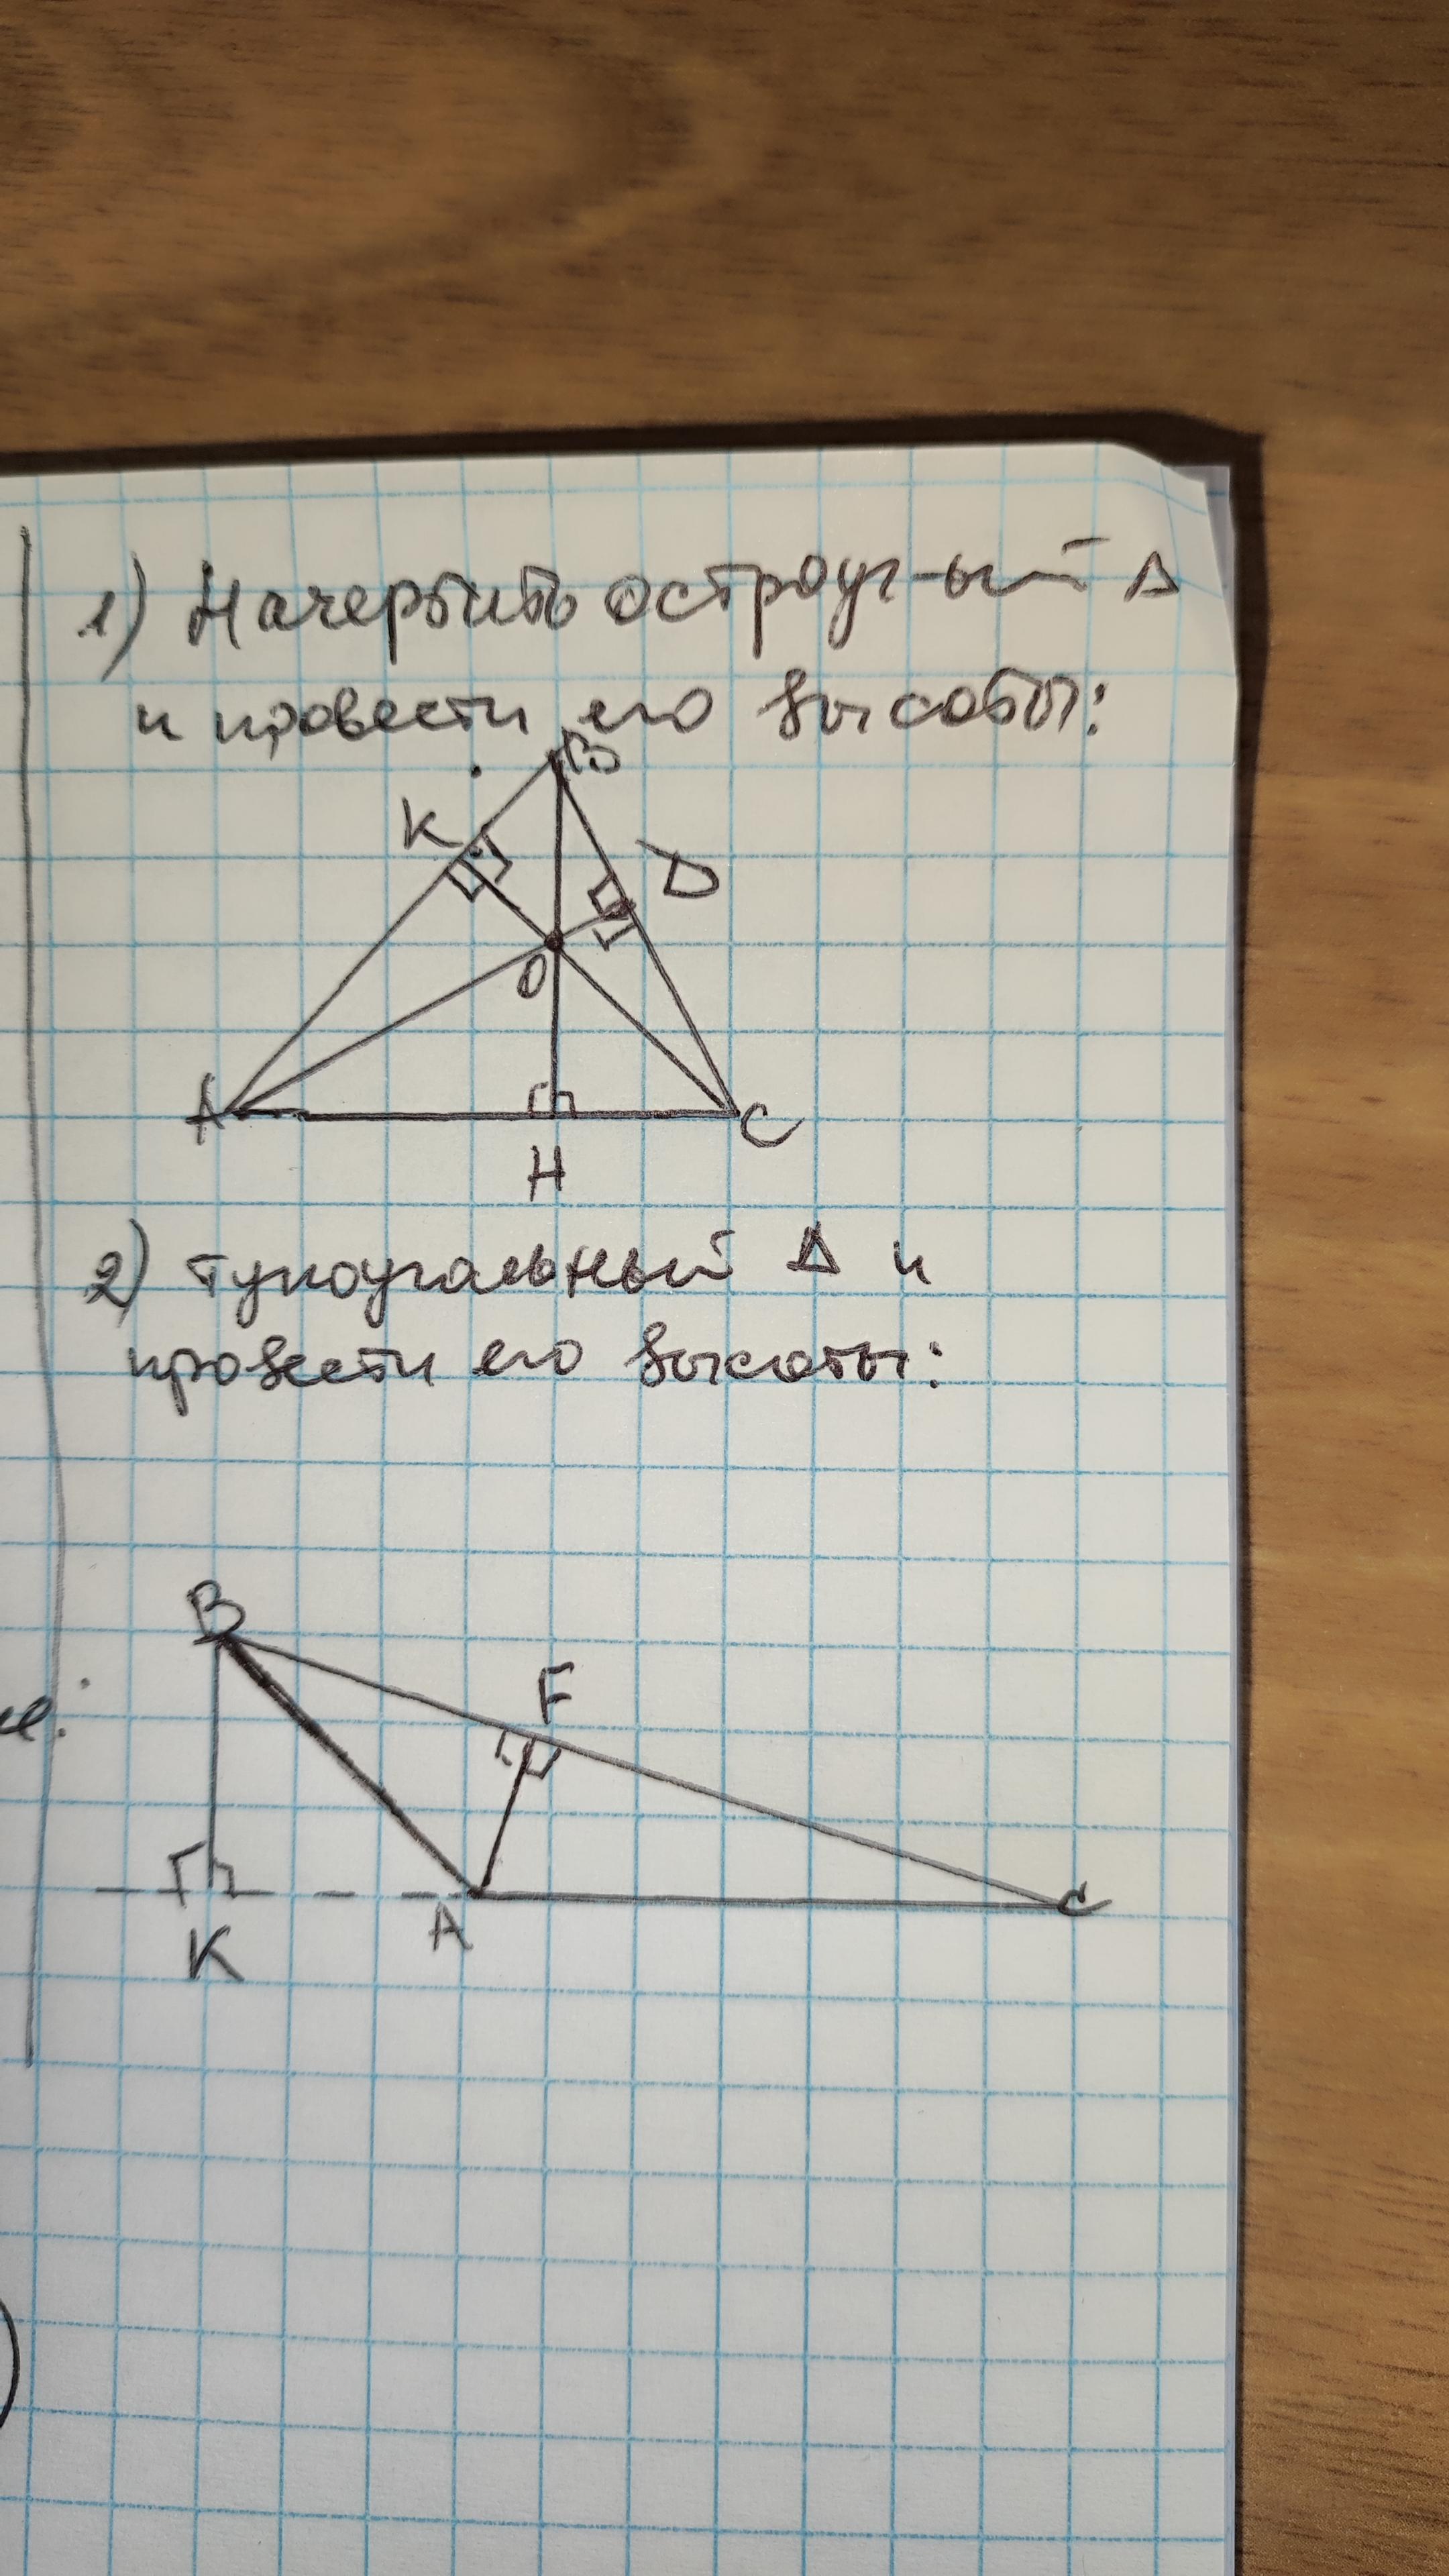 1) Начертить остроуг-ый Δ
и провести его высоты:
B
K
D
O
A
C
H
2) тупоугольный Δ и
провести его высоты:
B
F
A
C
K